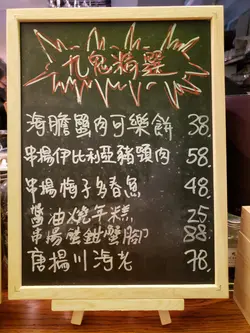 九鬼精選
海膽蟹肉可樂餅 38.
串揚伊比利亞豬頸肉 58.
串揚梅子多春魚 48.
醬油燒年糕 25.
串揚蟹鉗蟹腳 88.
唐揚川海老 78.